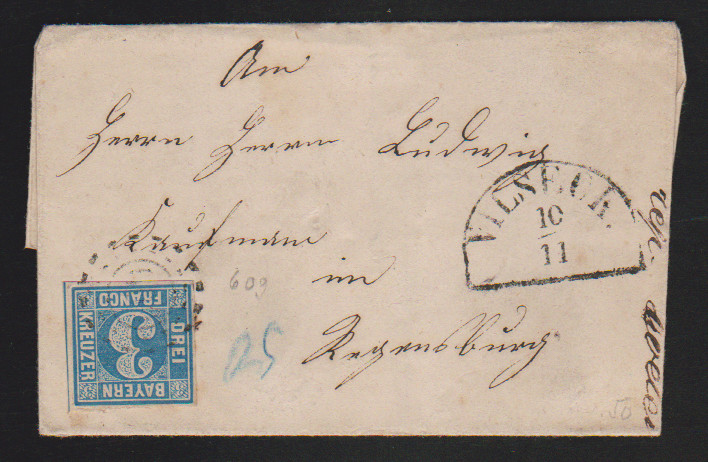 An
Herrn Herrn Ludwig
VILSECK.
10
11
Kaufman
609
in
BAYERN
DREI
3
KREUZER
FRANCO
25
Regensburg
50